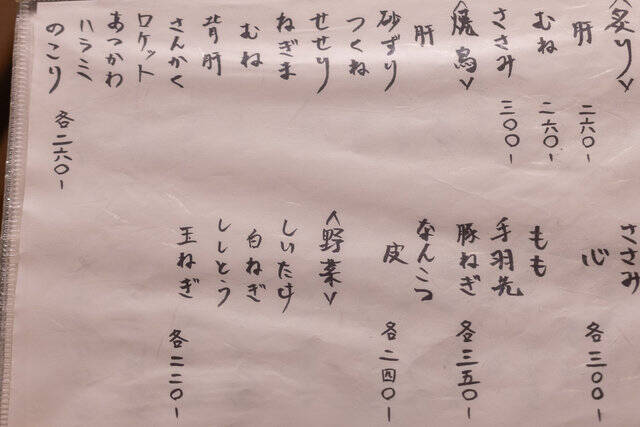 <炙り>
肝 二六〇-
むね 二六〇-
ささみ 三〇〇-
<焼鳥>
肝
砂ずり
つくね
せせり
ねぎま
むね
背肝
さんかく
ロケット
あつかわ
ハラミ
のこり 各二六〇-
ささみ
心 各三〇〇-
もも
手羽先
豚ねぎ 各三五〇-
なんこつ
皮 各二四〇-
<野菜>
しいたけ
白ねぎ
ししとう
玉ねぎ 各二二〇-